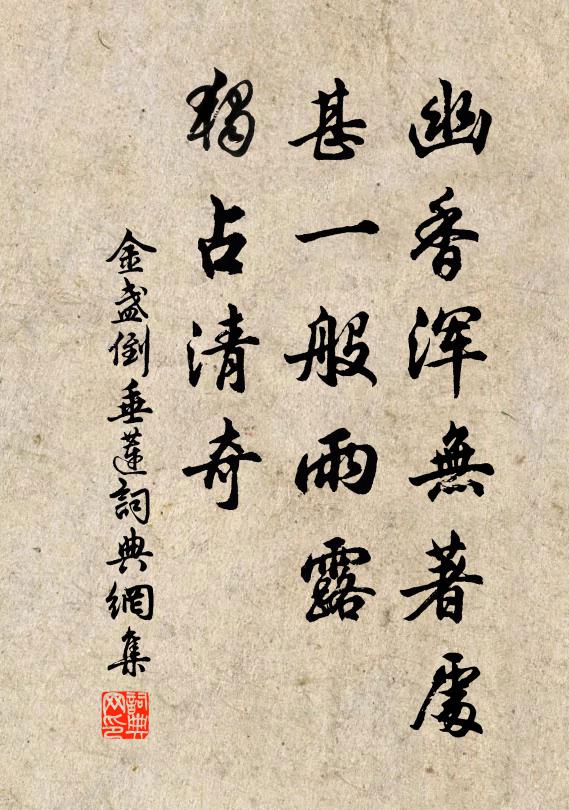 幽香浑無著處
甚一般雨露
獨占清奇
金盏倒垂蓮詞典網集
詞典网印